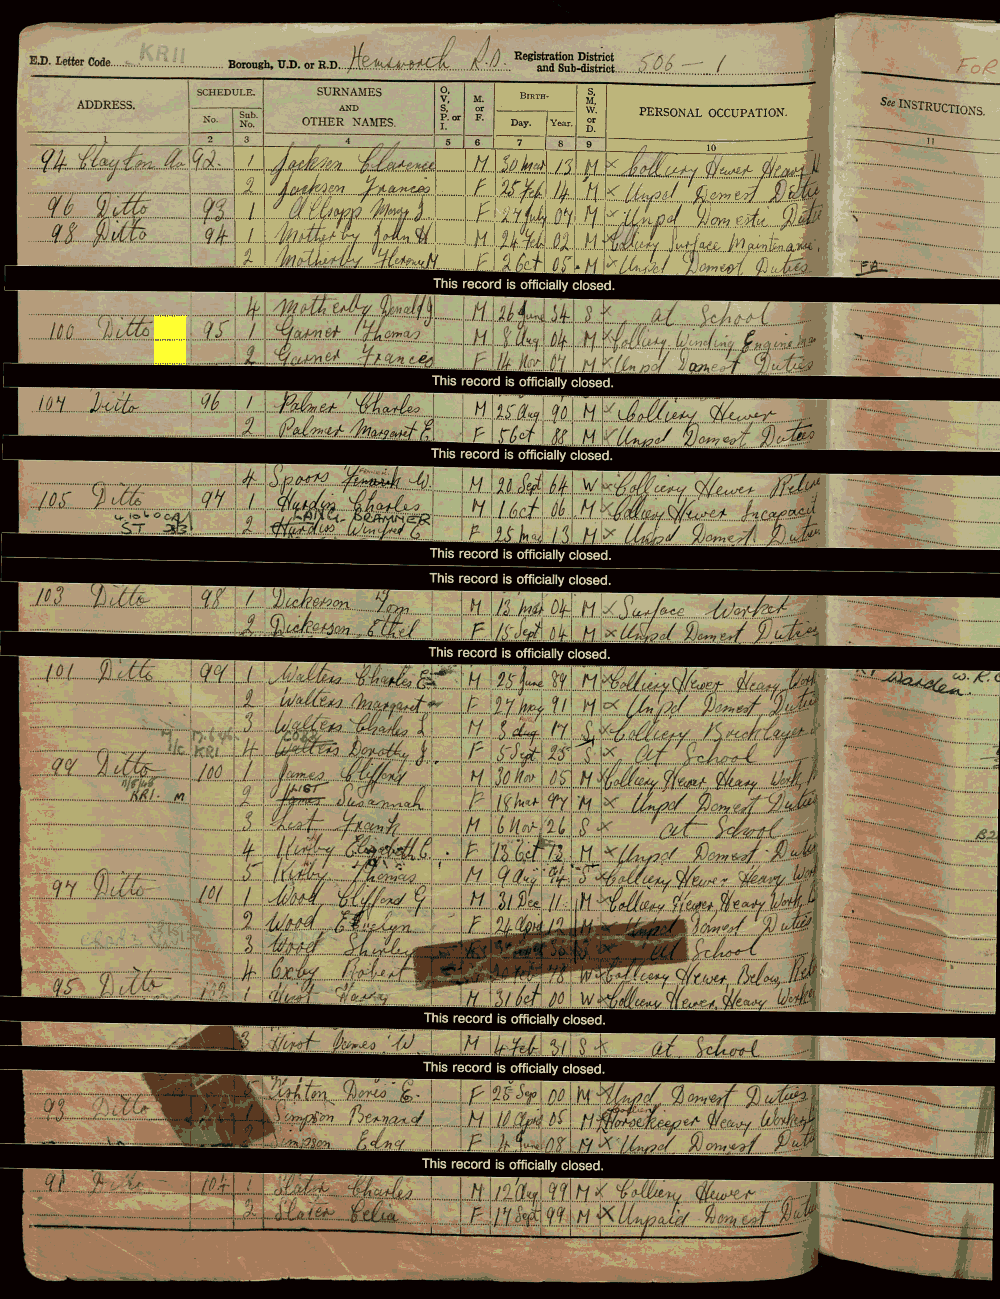 E.D. Letter Code KRII Borough, U.D. or R.D. Hemsworth R.D. Registration District and Sub-district 506 - 1
FOR
ADDRESS. SCHEDULE. No. Sub. No. SURNAMES AND OTHER NAMES. O, V, S, P, or I. M. or F. BIRTH- Day. Year. S, M, W, or D. PERSONAL OCCUPATION. See INSTRUCTIONS.
1 2 3 4 5 6 7 8 9 10 11
94 Clayton Av 92 1 Jackson Clarence M 30 Mar 13 M x Colliery Hewer Heavy
2 Jackson Frances F 25 Feb 14 M x Unpd Domest Duties
96 Ditto 93 1 Allsopp Mary J F 27 July 07 M x Unpd Domestic Duties
98 Ditto 94 1 Motherby John H M 24 Feb 02 M x Colliery Surface Maintenance
2 Motherby Florence M F 2 Oct 05 M x Unpd Domest Duties
This record is officially closed.
4 Motherby Donald J M 26 June 34 S x at School
100 Ditto 95 1 Garner Thomas M 8 Aug 04 M x Colliery Winding Engine
2 Garner Frances F 14 Nov 07 M x Unpd Domest Duties
This record is officially closed.
107 Ditto 96 1 Palmer Charles M 25 Aug 90 M x Colliery Hewer
2 Palmer Margaret E F 5 Oct 88 M x Unpd Domest Duties
This record is officially closed.
4 Spoors W. M 20 Sept 64 W x Colliery Hewer
105 Ditto 97 1 Hardis Charles M 1 Oct 06 M x Colliery Hewer Incapacit
2 Hardis Winifred E F 25 May 13 M x Unpd Domest Duties
This record is officially closed.
This record is officially closed.
103 Ditto 98 1 Dickerson Tom M 13 Mar 04 M x Surface Worker
2 Dickerson Ethel F 15 Sept 04 M x Unpd Domest Duties
This record is officially closed.
101 Ditto 99 1 Walters Charles E M 25 June 89 M x Colliery Hewer Heavy Work
Warden
2 Walters Margaret F 27 May 91 M x Unpd Domest Duties
3 Walters Charles L M 3 Aug 17 S x Colliery Bricklayer
4 Walters Dorothy J. F 5 Sept 25 S x At School
99 Ditto 100 1 James Clifford M 30 Nov 05 M x Colliery Hewer Heavy Work
KRI M
2 James LIST Susannah F 18 Mar 97 M x Unpd Domest Duties
3 List Frank M 6 Nov 26 S x at School
4 Kirby Elizabeth E. F 13 Oct 13 M x Unpd Domest Duties
5 Kirby Thomas M 9 Aug 14 S x Colliery Hewer Heavy Work
97 Ditto 101 1 Wood Clifford G M 31 Dec 11 M x Colliery Hewer, Heavy Work
2 Wood Evelyn F 24 Apr 12 M x Unpd Domest Duties
3 Wood Shirley S x at School
4 Exby Robert W x Colliery Hewer Below
95 Ditto 102 1 Hirst Harry M 31 Oct 00 W x Colliery Hewer, Heavy Worker
This record is officially closed.
3 Hirst James W M 4 Feb 31 S x at School
This record is officially closed.
Doris E. F 28 Sep 00 M x Unpd Domest Duties
93 Ditto Simpson Bernard M 10 Apr 05 M x Colliery Horsekeeper Heavy Worker
2 Simpson Edna F 4 June 08 M x Unpd Domest Duties
This record is officially closed.
91 Ditto 104 1 Slater Charles M 12 Aug 99 M x Colliery Hewer
2 Slater Celia F 17 Sept 99 M x Unpaid Domest Duties